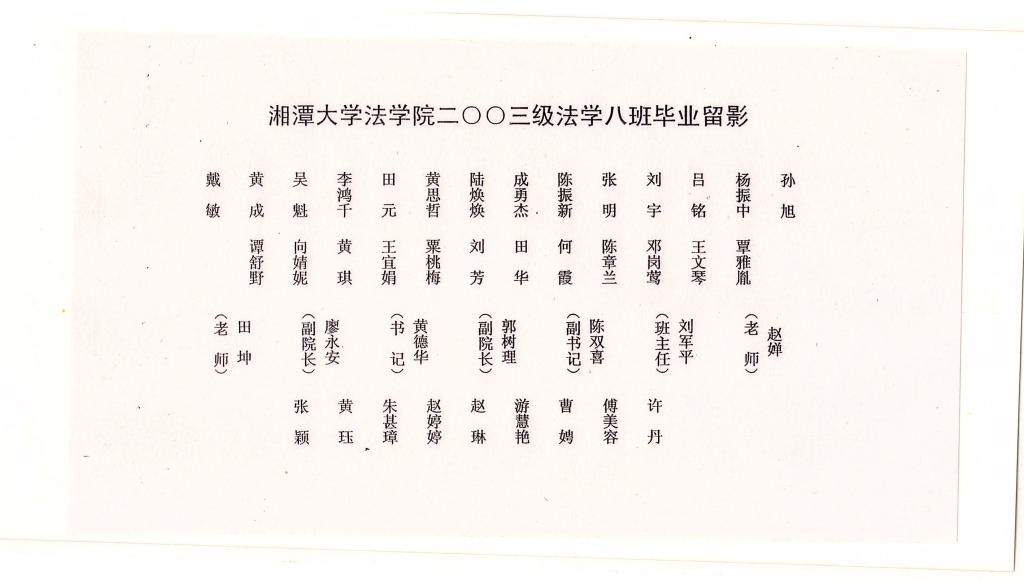 湘潭大学法学院二〇〇三级法学八班毕业留影
戴敏 黄成 吴魁 李鸿千 田元 黄思哲 陆焕焕 成勇杰 陈振新 张明 刘宇 吕铭 杨振中 孙旭
谭舒野 向婧妮 黄琪 王宜娟 粟桃梅 刘芳 田华 何霞 陈章兰 邓岗莺 王文琴 覃雅胤
田坤（老师） 廖永安（副院长） 黄德华（书记） 郭树理（副院长） 陈双喜（副书记） 刘军平（班主任） 赵婵（老师）
张颖 黄珏 朱甚璋 赵婷婷 赵琳 游慧艳 曹娉 傅美容 许丹